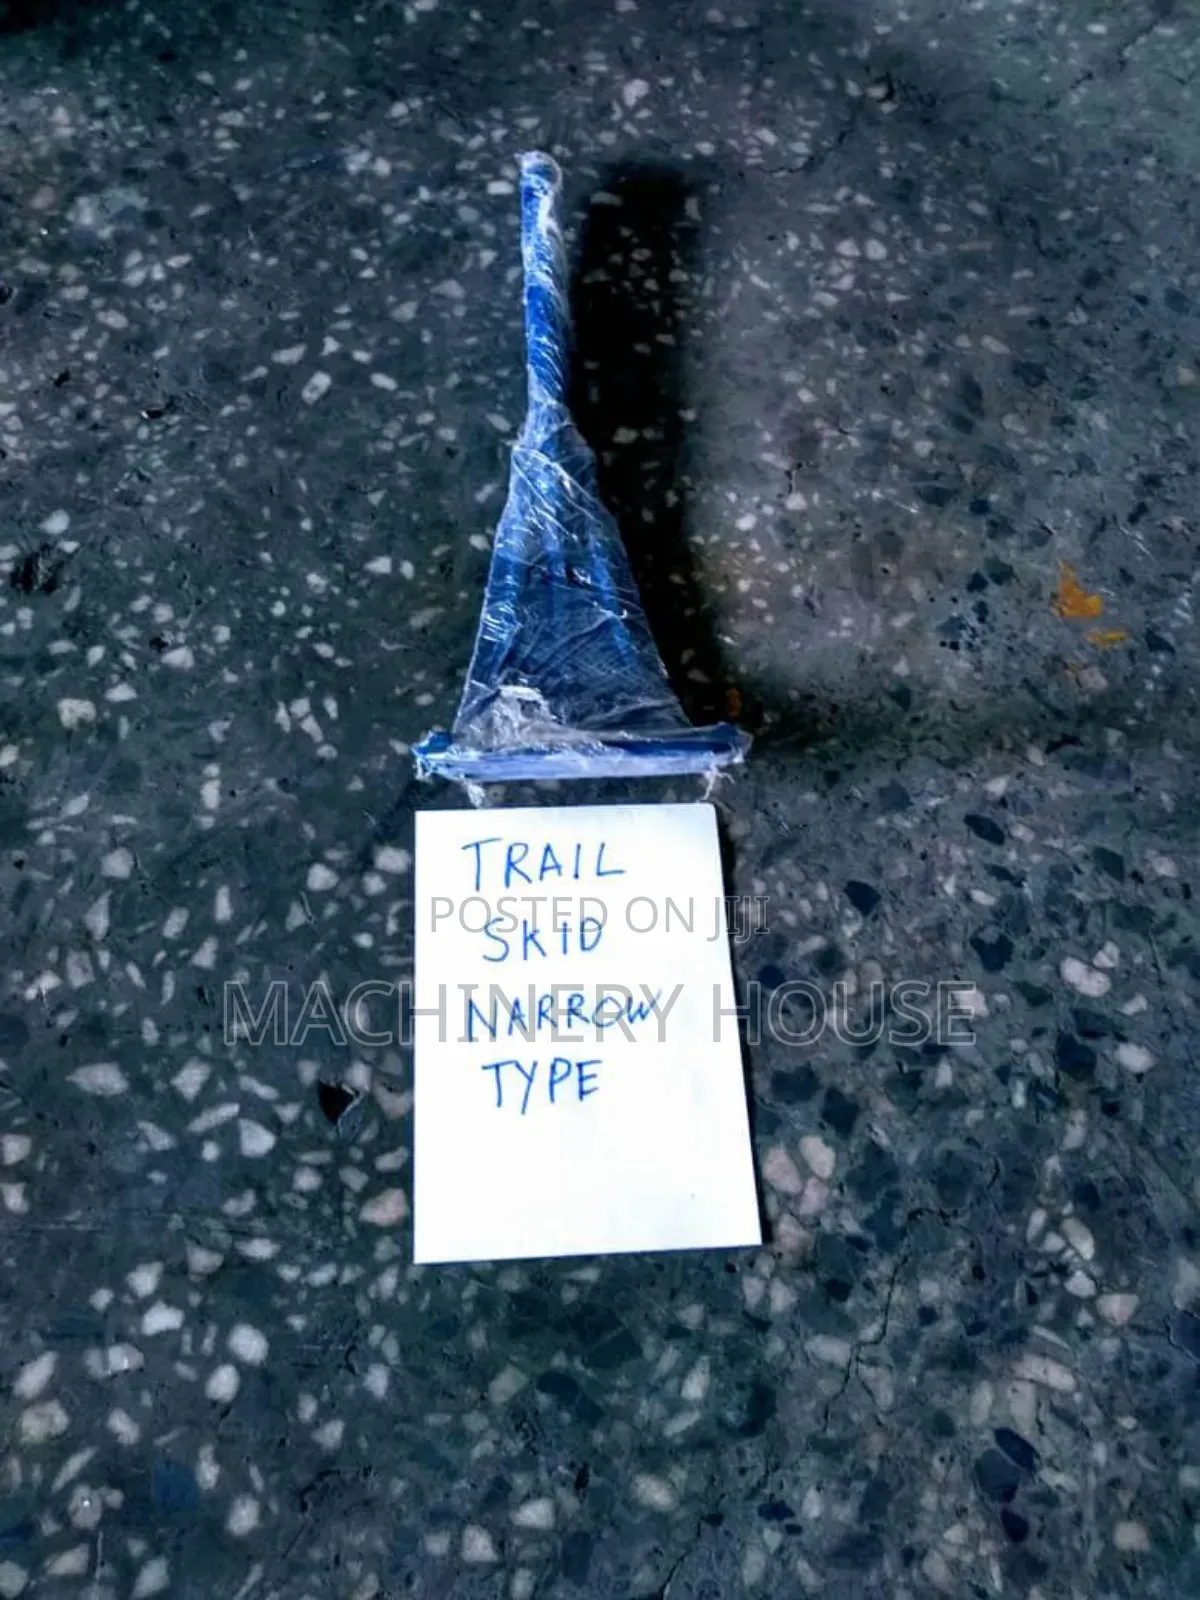 TRAIL
POSTED ON JIJI
SKID
MACHINERY HOUSE
NARROW
TYPE